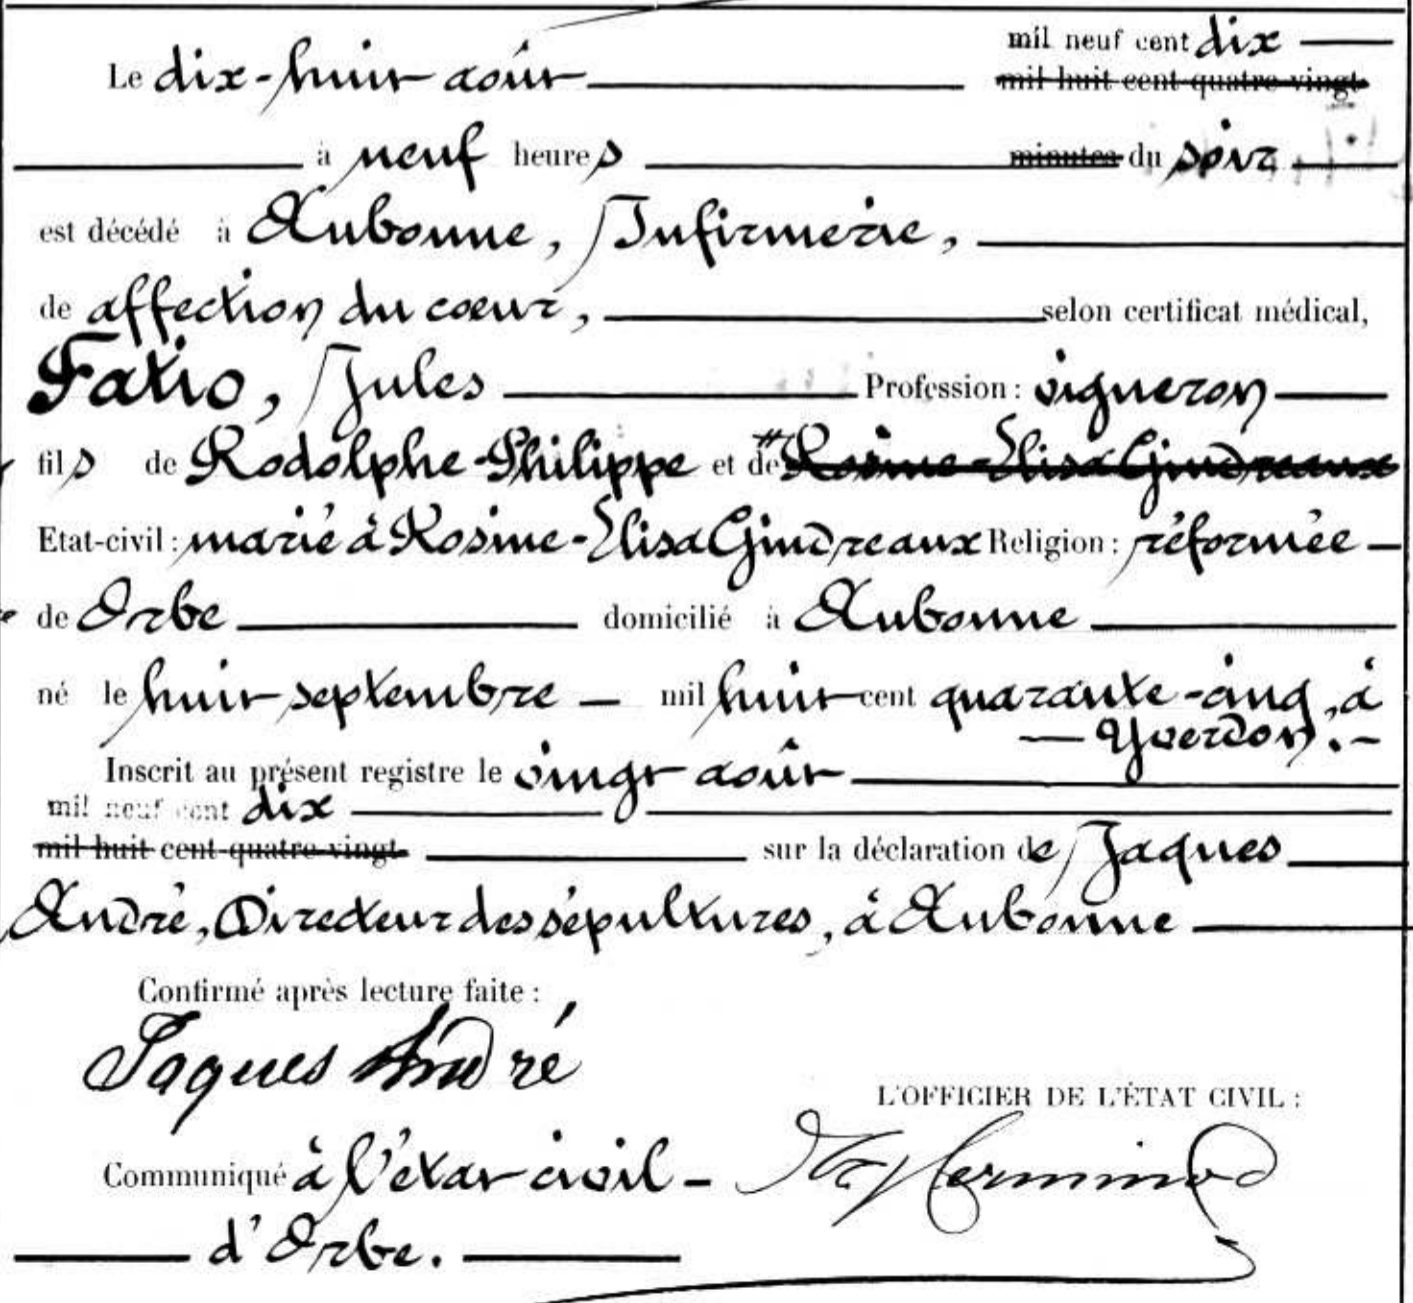 mil neuf cent dix
Le dix-huit août mil huit cent quatre-vingt
à neuf heures minutes du soir
est décédé à Aubonne, Infirmerie,
de affection du coeur, selon certificat médical,
Fatio, Jules Profession : vigneron
fils de Rodolphe-Philippe et de # Rosine-Elisa Gindreaux
Etat-civil : marié à Rosine-Elisa Gindreaux Religion : réformée
de Orbe domicilié à Aubonne
né le huit septembre mil huit cent quarante-cinq, à
Yverdon.
Inscrit au présent registre le vingt août
mil neuf cent dix
mil huit cent quatre-vingt sur la déclaration de Jaques
André, Directeur des sépultures, à Aubonne
Confirmé après lecture faite :
Jaques André
L'OFFICIER DE L'ÉTAT CIVIL :
Communiqué à l'état civil Herminod
d'Orbe.